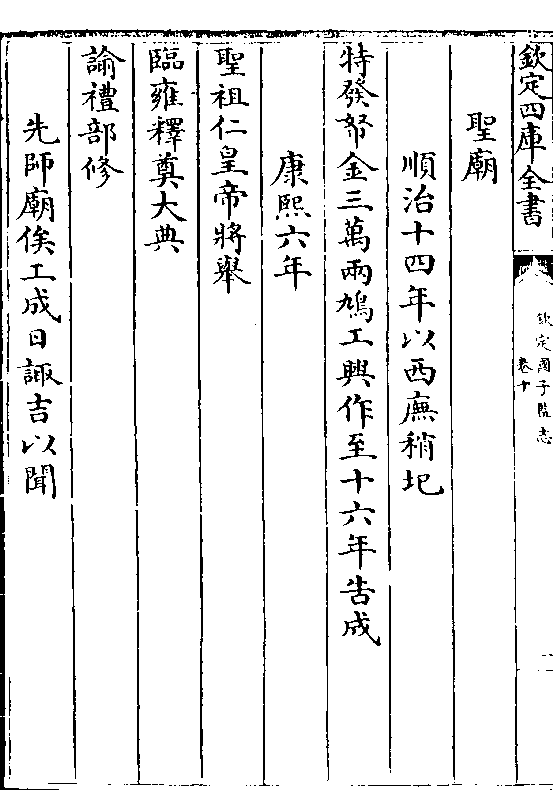 欽定四庫全書
欽定國子監志
卷十
聖廟
順治十四年以西廡稍圮
特發帑金三萬兩鳩工興作至十六年告成
康熙六年
聖祖仁皇帝將舉
臨雍釋奠大典
諭禮部修
先師廟俟工成日諏吉以聞